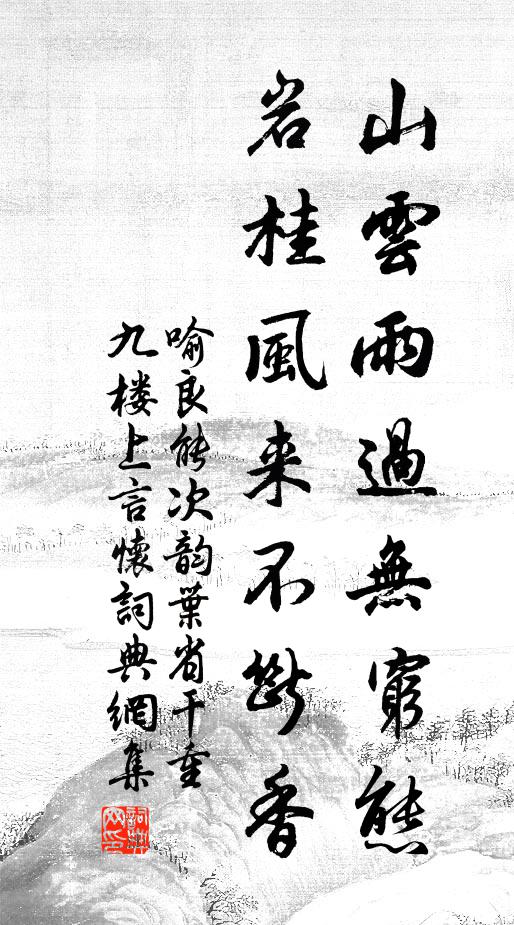 山雲雨過無窮態
岩桂風来不断香
喻良能次韵葉省干重
九楼上言懷詞典網集